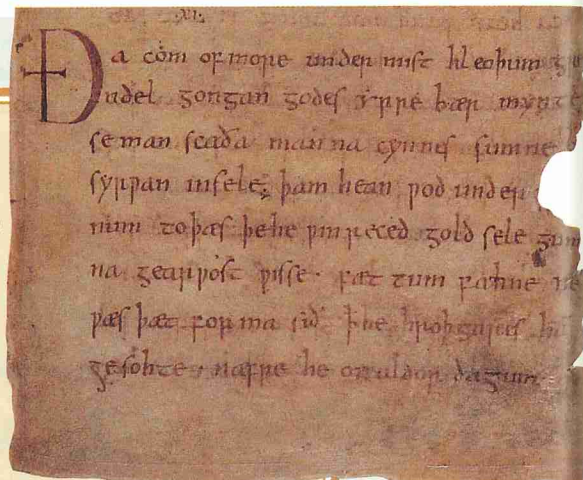 XI·
Ða com of more under mist hleoþum gre
ndel gongan godes yrre bær mynte
se man scaða manna cynnes sumne
syrƿan in sele þam hean ƿod under
num to þæs þe he ƿin reced gold sele gum
na gearƿost ƿisse · fæt tum fahne ne
ƿæs þæt forma sið þ he hroþgares ha
gesohte næfre he on aldor dagum